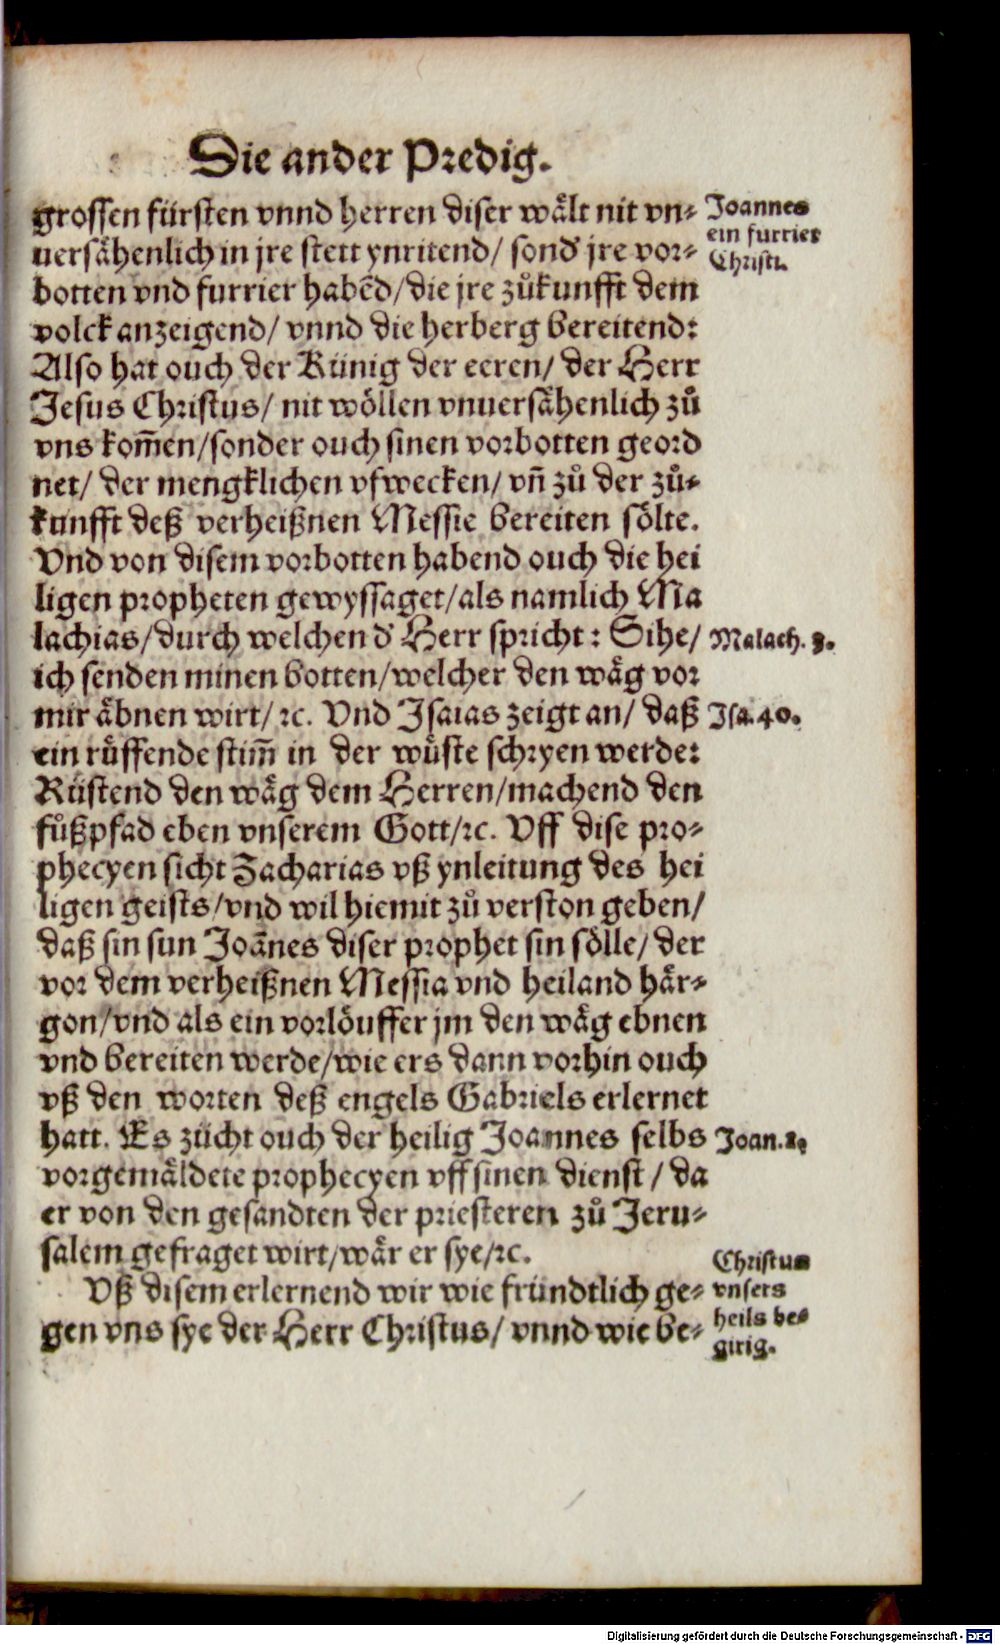 Die ander Predig.
grossen fürsten vnnd herren diser wält nit vn⸗
uersähenlich in jre stett ynritend/ sond' jre vor⸗
botten vnd furrier habēd/die jre zůkunfft dem
volck anzeigend/ vnnd die herberg bereitend:
Also hat ouch der Künig der eeren/ der Herr
Jesus Christus/ nit wöllen vnuersähenlich zů
vns kom̄en/sonder ouch sinen vorbotten geord
net/ der mengklichen vfwecken/ vn̄ zů der zů⸗
kunfft deß verheißnen Messie bereiten sölte.
Vnd von disem vorbotten habend ouch die hei
ligen propheten gewyssaget/als namlich Ma
lachias/durch welchen d' Herr spricht: Sihe/
ich senden minen botten/welcher den wäg vor
mir äbnen wirt/ ꝛc. Vnd Isaias zeigt an/ daß
ein rüffende stim̄ in der wüste schryen werde:
Rüstend den wäg dem Herren/machend den
fůßpfad eben vnserem Gott/ꝛc. Vff dise pro⸗
phecyen sicht Zacharias vß ynleitung des hei
ligen geists/vnd wil hiemit zů verston geben/
daß sin sun Joān̄es diser prophet sin sölle/ der
vor dem verheißnen Messia vnd heiland här⸗
gon/vnd als ein vorlöuffer jm den wäg ebnen
vnd bereiten werde/wie ers dann vorhin ouch
vß den worten deß engels Gabriels erlernet
hatt. Es zücht ouch der heilig Joannes selbs
vorgemäldete prophecyen vff sinen dienst / da
er von den gesandten der priesteren zů Jeru⸗
salem gefraget wirt/wär er sye/ꝛc.
Vß disem erlernend wir wie fründtlich ge⸗
gen vns sye der Herr Christus/ vnnd wie be⸗
Joannes
ein furrier
Christi.
Malach. 3.
Isa. 40.
Joan. 1.
Christus
vnsers
heils be⸗
girig.
Digitalisierung gefördert durch die Deutsche Forschungsgemeinschaft - DFG